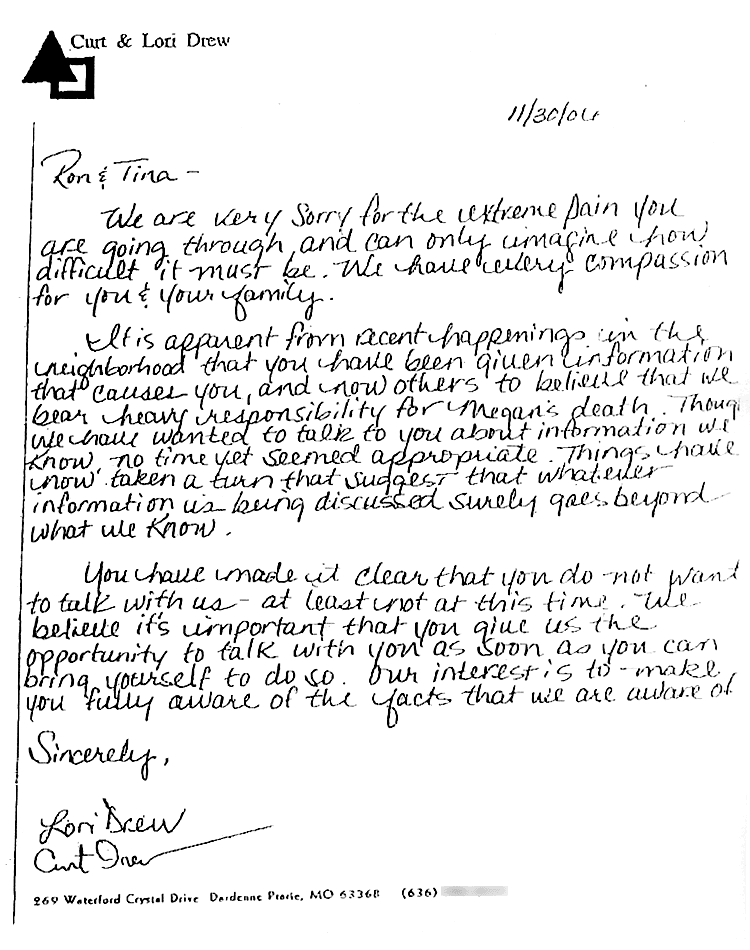 Curt & Lori Drew
11/30/06
Ron & Tina -
We are very sorry for the extreme pain you
are going through, and can only imagine how
difficult it must be. We have every compassion
for you & your family.
It is apparent from recent happenings in the
neighborhood that you have been given information
that causes you, and now others to believe that we
bear heavy responsibility for Megan's death. Thoug
we have wanted to talk to you about information we
know, no time yet seemed appropriate. Things have
now taken a turn that suggest that whatever
information is being discussed surely goes beyond
what we know.
You have made it clear that you do not want
to talk with us - at least not at this time. We
believe it's important that you give us the
opportunity to talk with you as soon as you can
bring yourself to do so. Our interest is to make
you fully aware of the facts that we are aware of
Sincerely,
Lori Drew
Curt Drew
269 Waterford Crystal Drive Dardenne Prarie, MO 63368 (636)